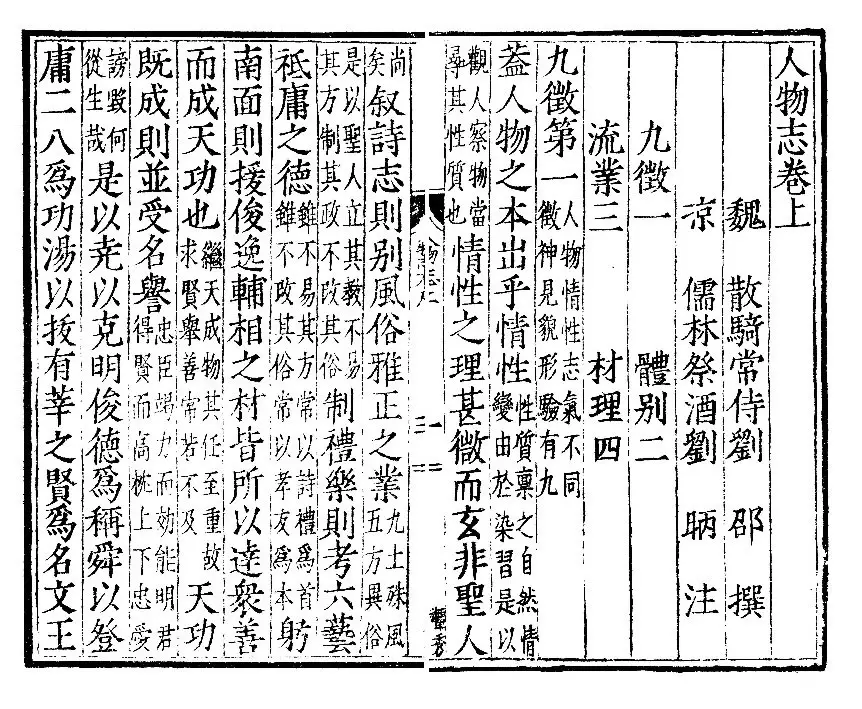 人物志卷上
魏 散騎常侍劉 邵 撰
凉 儒林祭酒劉 昞 注
九徵一 體别二
流業三 材理四
九徵第一 人物情性志氣不同 徵神見貌形驗有九
蓋人物之本出乎情性 性質稟之自然情 變由於染習是以
觀人察物當 尋其性質也 情性之理甚微而玄非聖人
尚 矣 叙詩志則别風俗雅正之業 九土殊風 五方異俗
是以聖人立其教不易 其方制其政不改其俗 制禮樂則考六藝
祗庸之德 雖不易其方常以詩禮爲首 雖不改其俗常以孝友爲本 躬
南面則援俊逸輔相之材皆所以逹衆善
而成天功也 繼天成物其任至重故 求賢舉善常若不及 天功
既成則並受名譽 忠臣竭力而効能明君 得賢而高枕上下忠愛
謗毀何 從生哉 是以尭以克明俊德爲稱舜以登
庸二八爲功湯以拔有莘之賢爲名文王